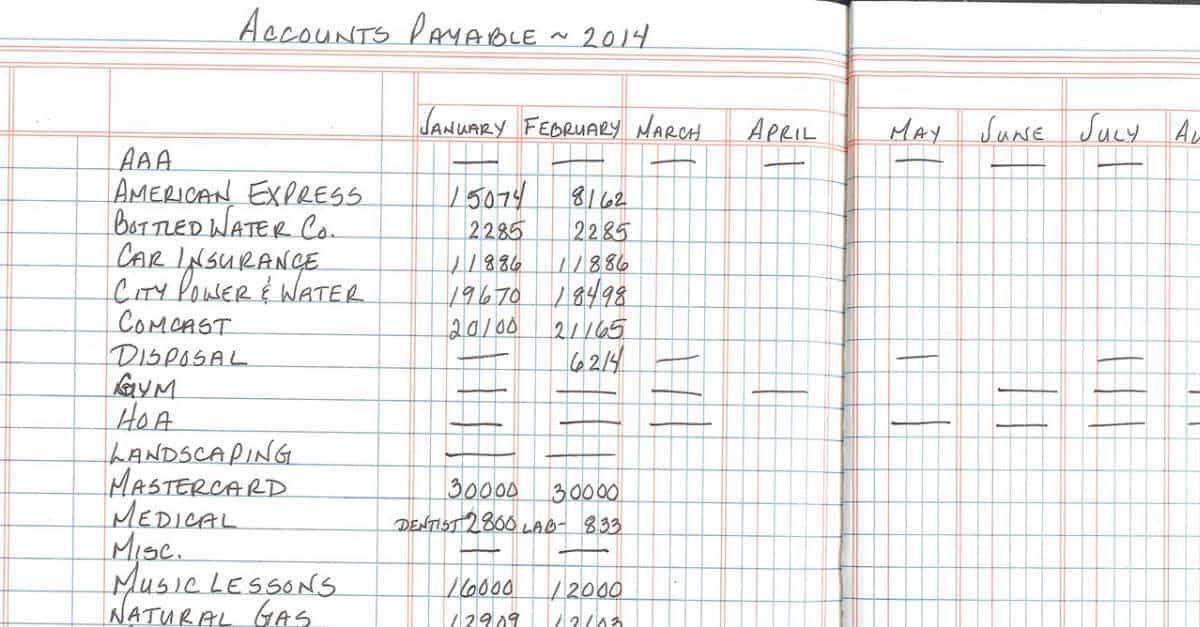 ACCOUNTS PAYABLE ~ 2014
JANUARY FEBRUARY MARCH APRIL MAY JUNE JULY AU
AAA — — — — — — —
AMERICAN EXPRESS 15074 8162
BOTTLED WATER CO. 2285 2285
CAR INSURANCE 11886 11886
CITY POWER & WATER 19670 18498
COMCAST 20100 21165
DISPOSAL — 6214 — — —
GYM — — — — — — —
HOA — — — — — — —
LANDSCAPING — —
MASTERCARD 30000 30000
MEDICAL DENTIST 2800 LAB- 833
MISC. — —
MUSIC LESSONS 16000 12000
NATURAL GAS 12909